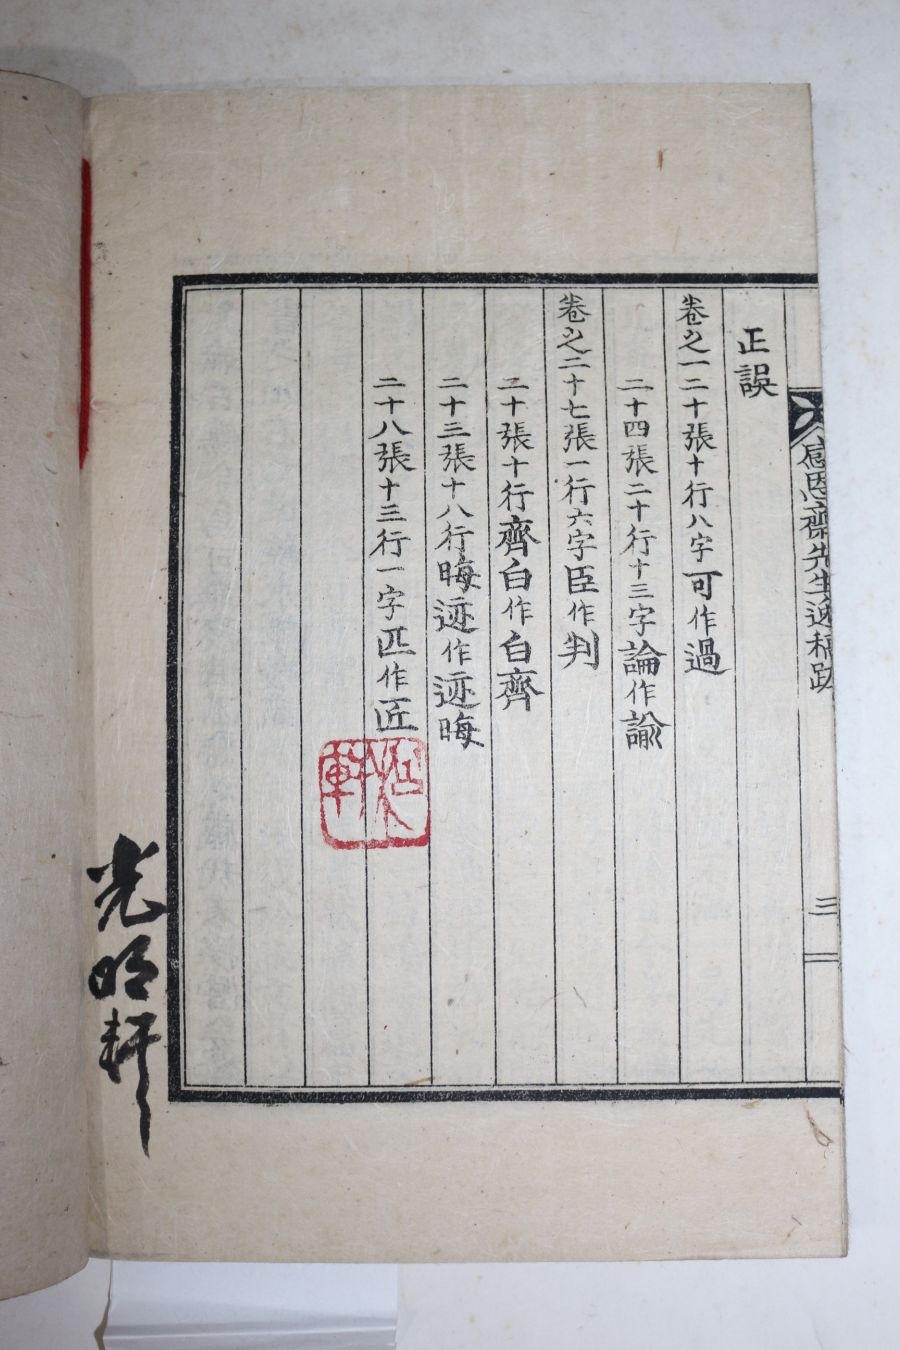 感恩齋先生逸稿跋
三
正誤
卷之一二十張十行八字可作過
二十四張二十行十三字論作諭
卷之二十七張一行六字臣作判
二十張十行齊白作白齊
二十三張十八行晦迹作迹晦
二十八張十三行一字匹作匠
軒
光明軒